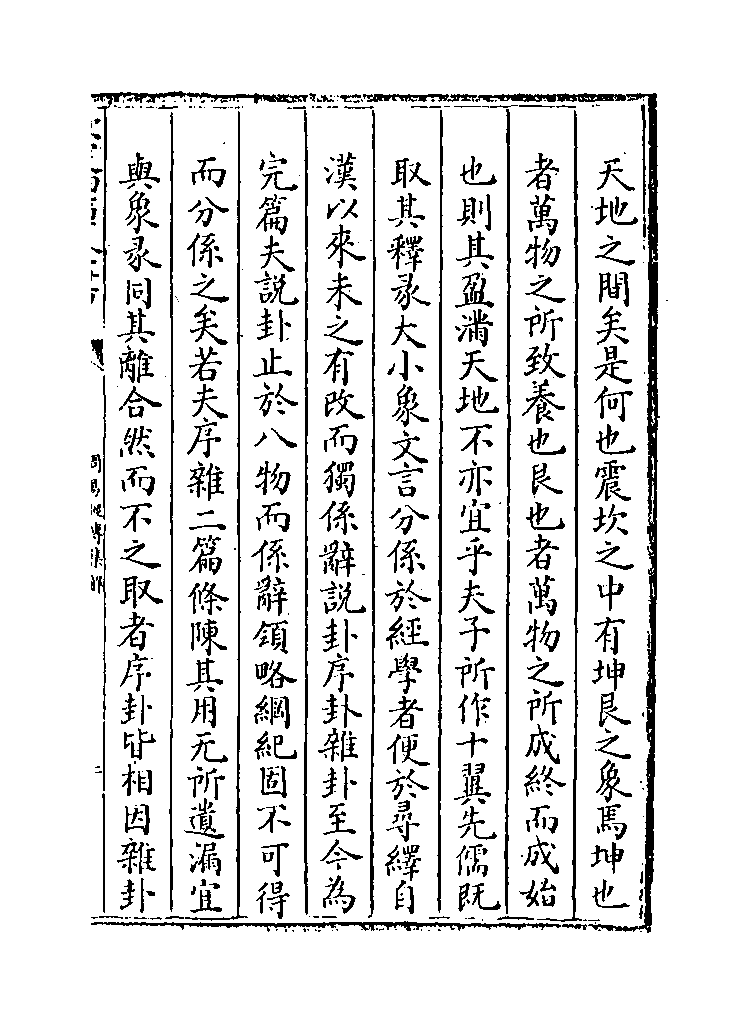 天地之間矣是何也震坎之中有坤艮之象焉坤也
者萬物之所致養也艮也者萬物之所成終而成始
也則其盈滿天地不亦宜乎夫子所作十翼先儒既
取其釋彖大小象文言分係於經學者便於尋繹自
漢以來未之有改而獨係辭説卦序卦雜卦至今為
完篇夫説卦止於八物而係辭領略綱紀固不可得
而分係之矣若夫序雜二篇條陳其用无所遺漏宜
與象彖同其離合然而不之取者序卦皆相因雜卦
二